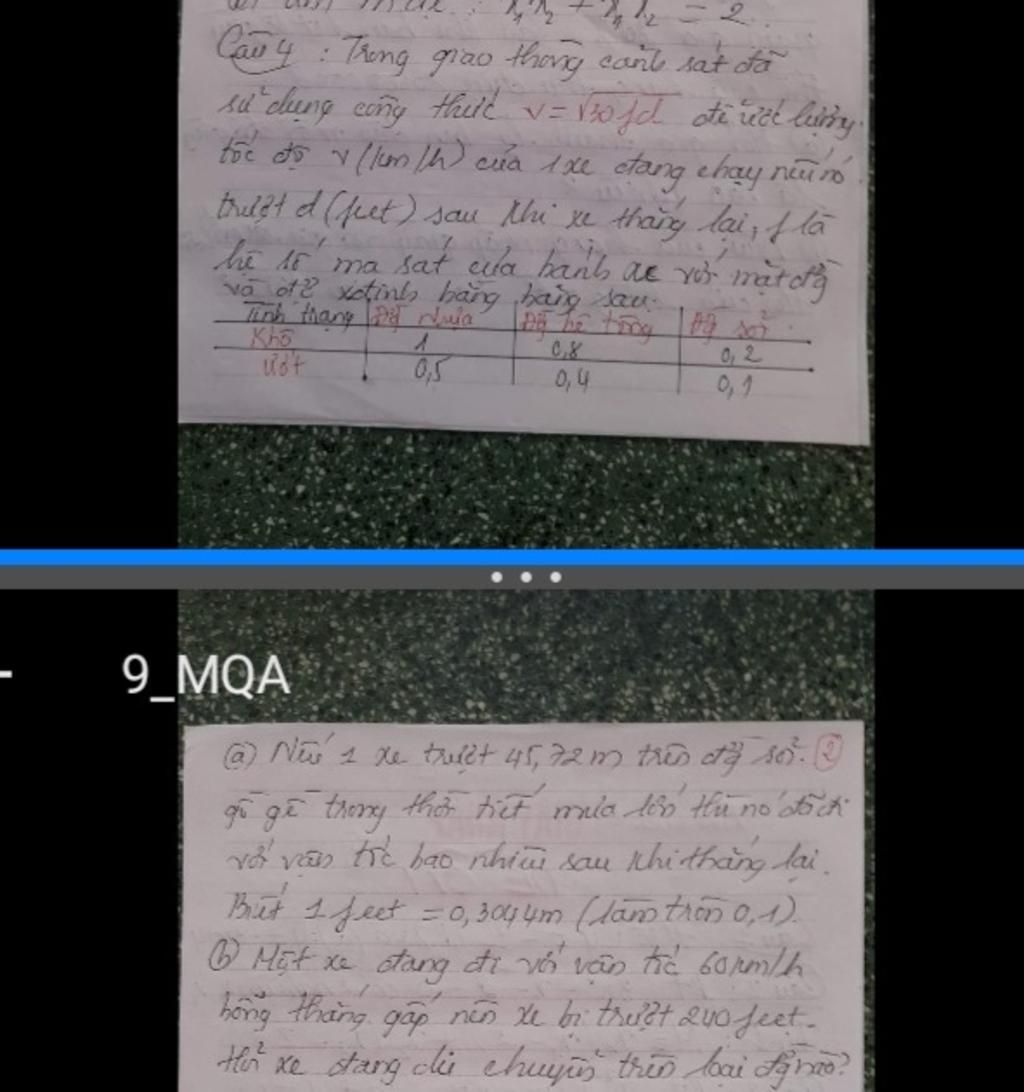 x₁²x₂ + x₁x₂² = 2.
Câu 4 : Trong giao thông cảnh sát đã
sử dụng công thức v = √30fd để ước lượng
tốc độ v (km/h) của 1 xe đang chạy nếu nó
trượt d (feet) sau khi xe thắng lại, f là
hệ số ma sát của bánh xe với mặt đg
và đc xđ tính bằng bảng sau:
Tình trạng Đg nhựa Đg bê tông Đg sỏi
Khô 1 0,8 0,2
Ướt 0,5 0,4 0,1
9_MQA
(a) Nếu 1 xe trượt 45,72m trên đg sỏi. 2
gồ ghề trong thời tiết mưa lớn thì nó đã đi
với vận tốc bao nhiêu sau khi thắng lại.
Biết 1 feet = 0,3044m (làm tròn 0,1)
(b) Một xe đang đi với vận tốc 60km/h
bỗng thắng gấp nên xe bị trượt 240 feet.
thì xe đang di chuyển trên loại đg nào?